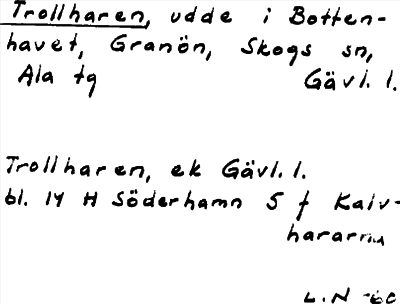 Trollharen, udde i Botten-
havet, Granön, Skogs sn,
Ala tg Gävl. l.
Trollharen, ek Gävl. l.
bl. 14 H Söderhamn 5 f Kalv-
hararna
L.N -60